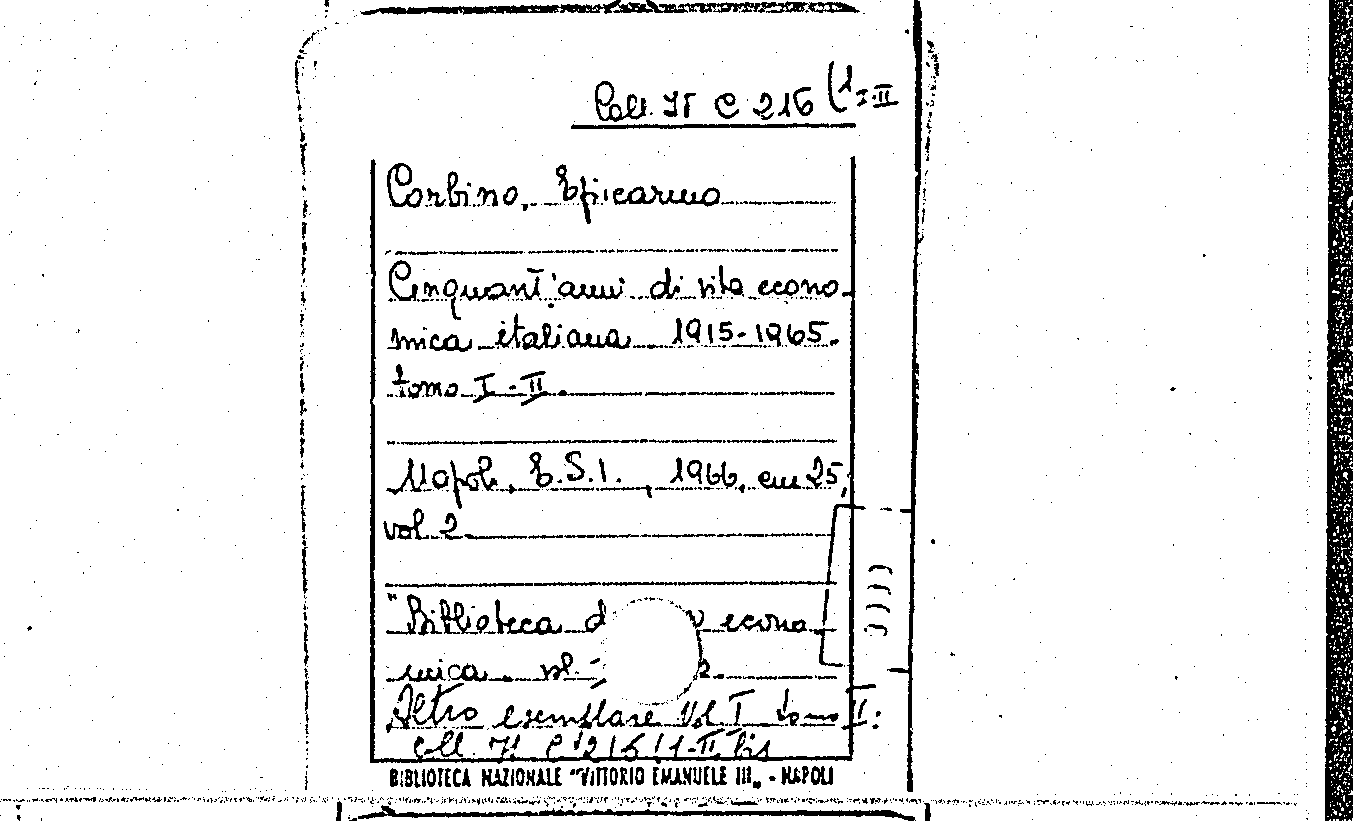 Coll. H C 216 (1 I-II
Corbino, Epicarmo
Cinquant'anni di vita econo-
mica italiana 1915-1965.
tomo I-II.
Napoli, E.S.I., 1966, cm 25,
vol. 2
"Biblioteca econo
mica. vol.
Altro esemplare Vol I tomo II:
coll. H C 216 (1-II bis
BIBLIOTECA NAZIONALE "VITTORIO EMANUELE III„ - NAPOLI